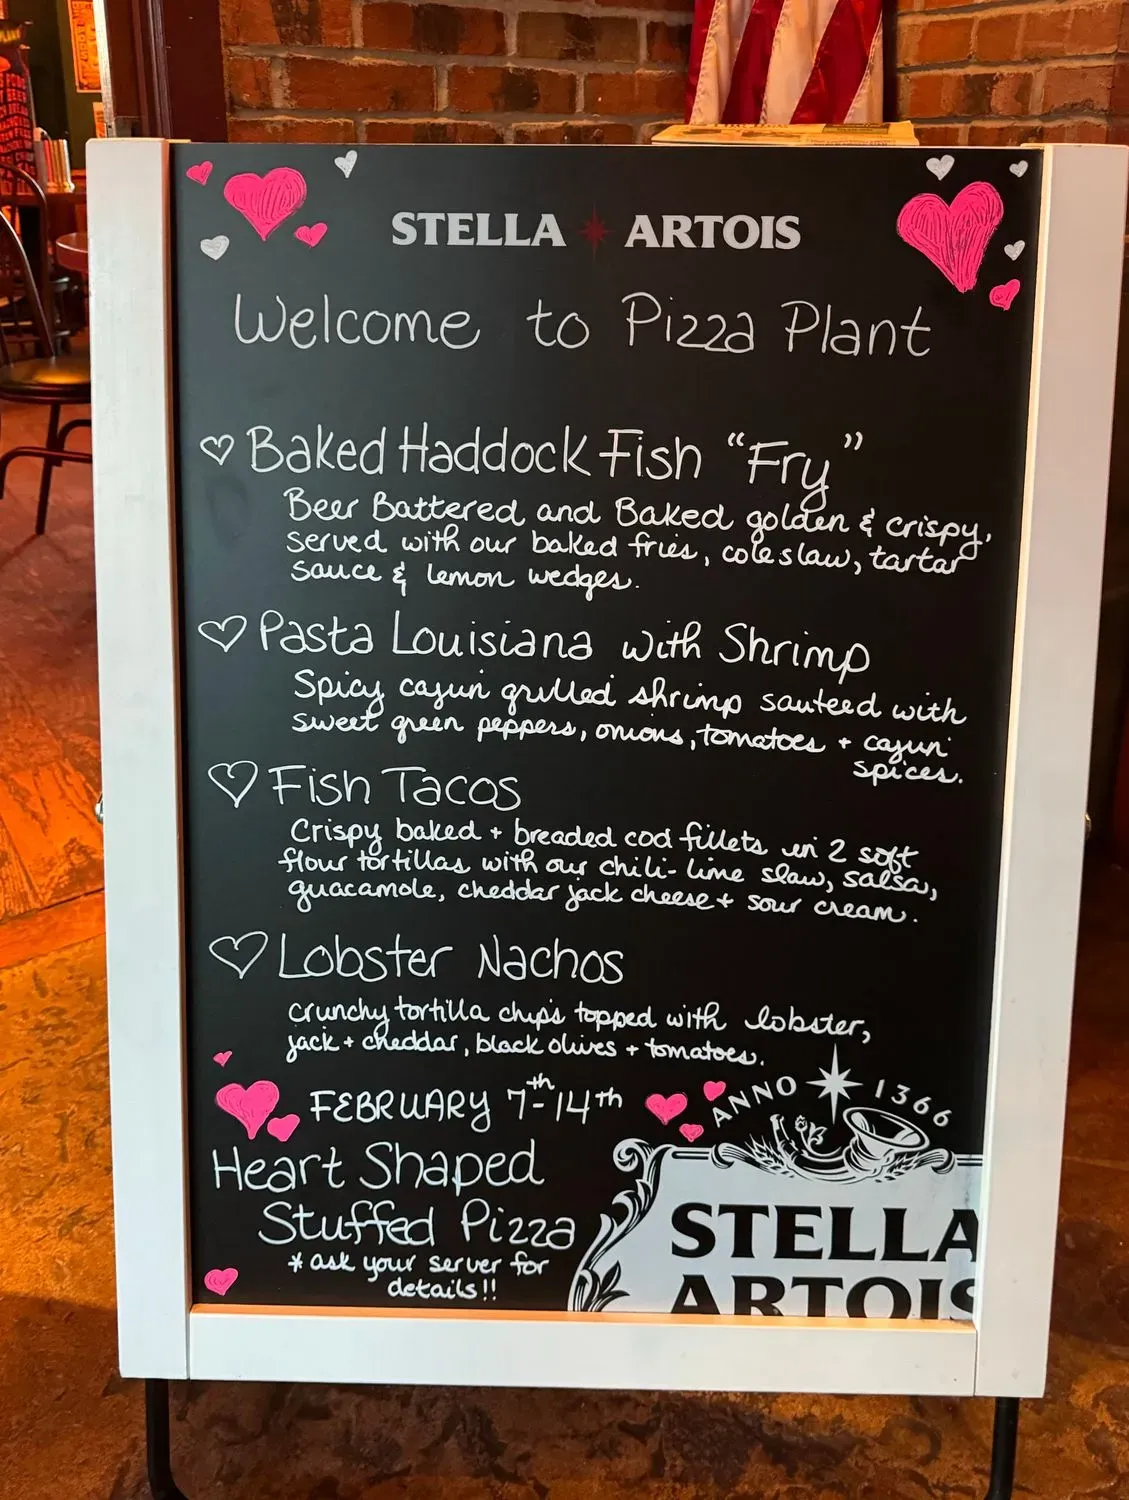 STELLA ARTOIS
Welcome to Pizza Plant
Baked Haddock Fish "Fry"
Beer Battered and Baked golden & crispy,
served with our baked fries, coleslaw, tartar
sauce & lemon wedges.
Pasta Louisiana with Shrimp
Spicy cajun grilled shrimp sauteed with
sweet green peppers, onions, tomatoes + cajun
spices.
Fish Tacos
Crispy baked + breaded cod fillets in 2 soft
flour tortillas with our chili-lime slaw, salsa,
guacamole, cheddar jack cheese + sour cream.
Lobster Nachos
crunchy tortilla chips topped with lobster,
jack + cheddar, black olives + tomatoes.
FEBRUARY 7th-14th
Heart Shaped
Stuffed Pizza
* ask your server for
details!!
ANNO 1366
STELLA
ARTOIS